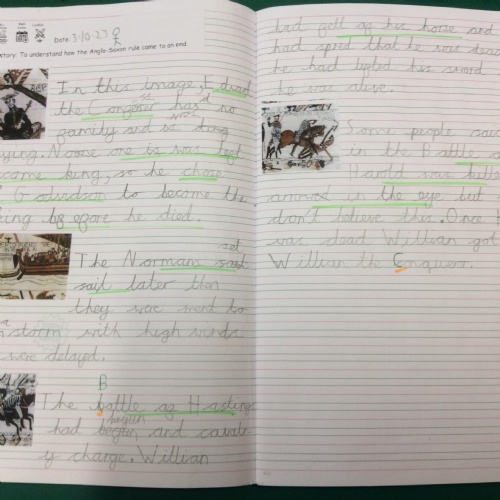 Date: 3/10/23
story: To understand how the Anglo-Saxon rule came to an end.
In this image, E dward
the Congerer has no
gamily and was
ying. Noose one is was left
come king, so he chose
Godwidson to become the
ing bg egore he died.
set
The Normans said
sail later than
they were ment to
a storm with high winds
were delayed.
B
The battle og Hastings
beguin
had beguin and cavalr
y charge. Willian
had gell og his horse and
had spred that he was dead
he had his sword
he was alive.
Some people said
in the Battle
Harold was kille
arrow in the eye but
don't believe this. Once
was dead Willian got
Willian the Conqueror.